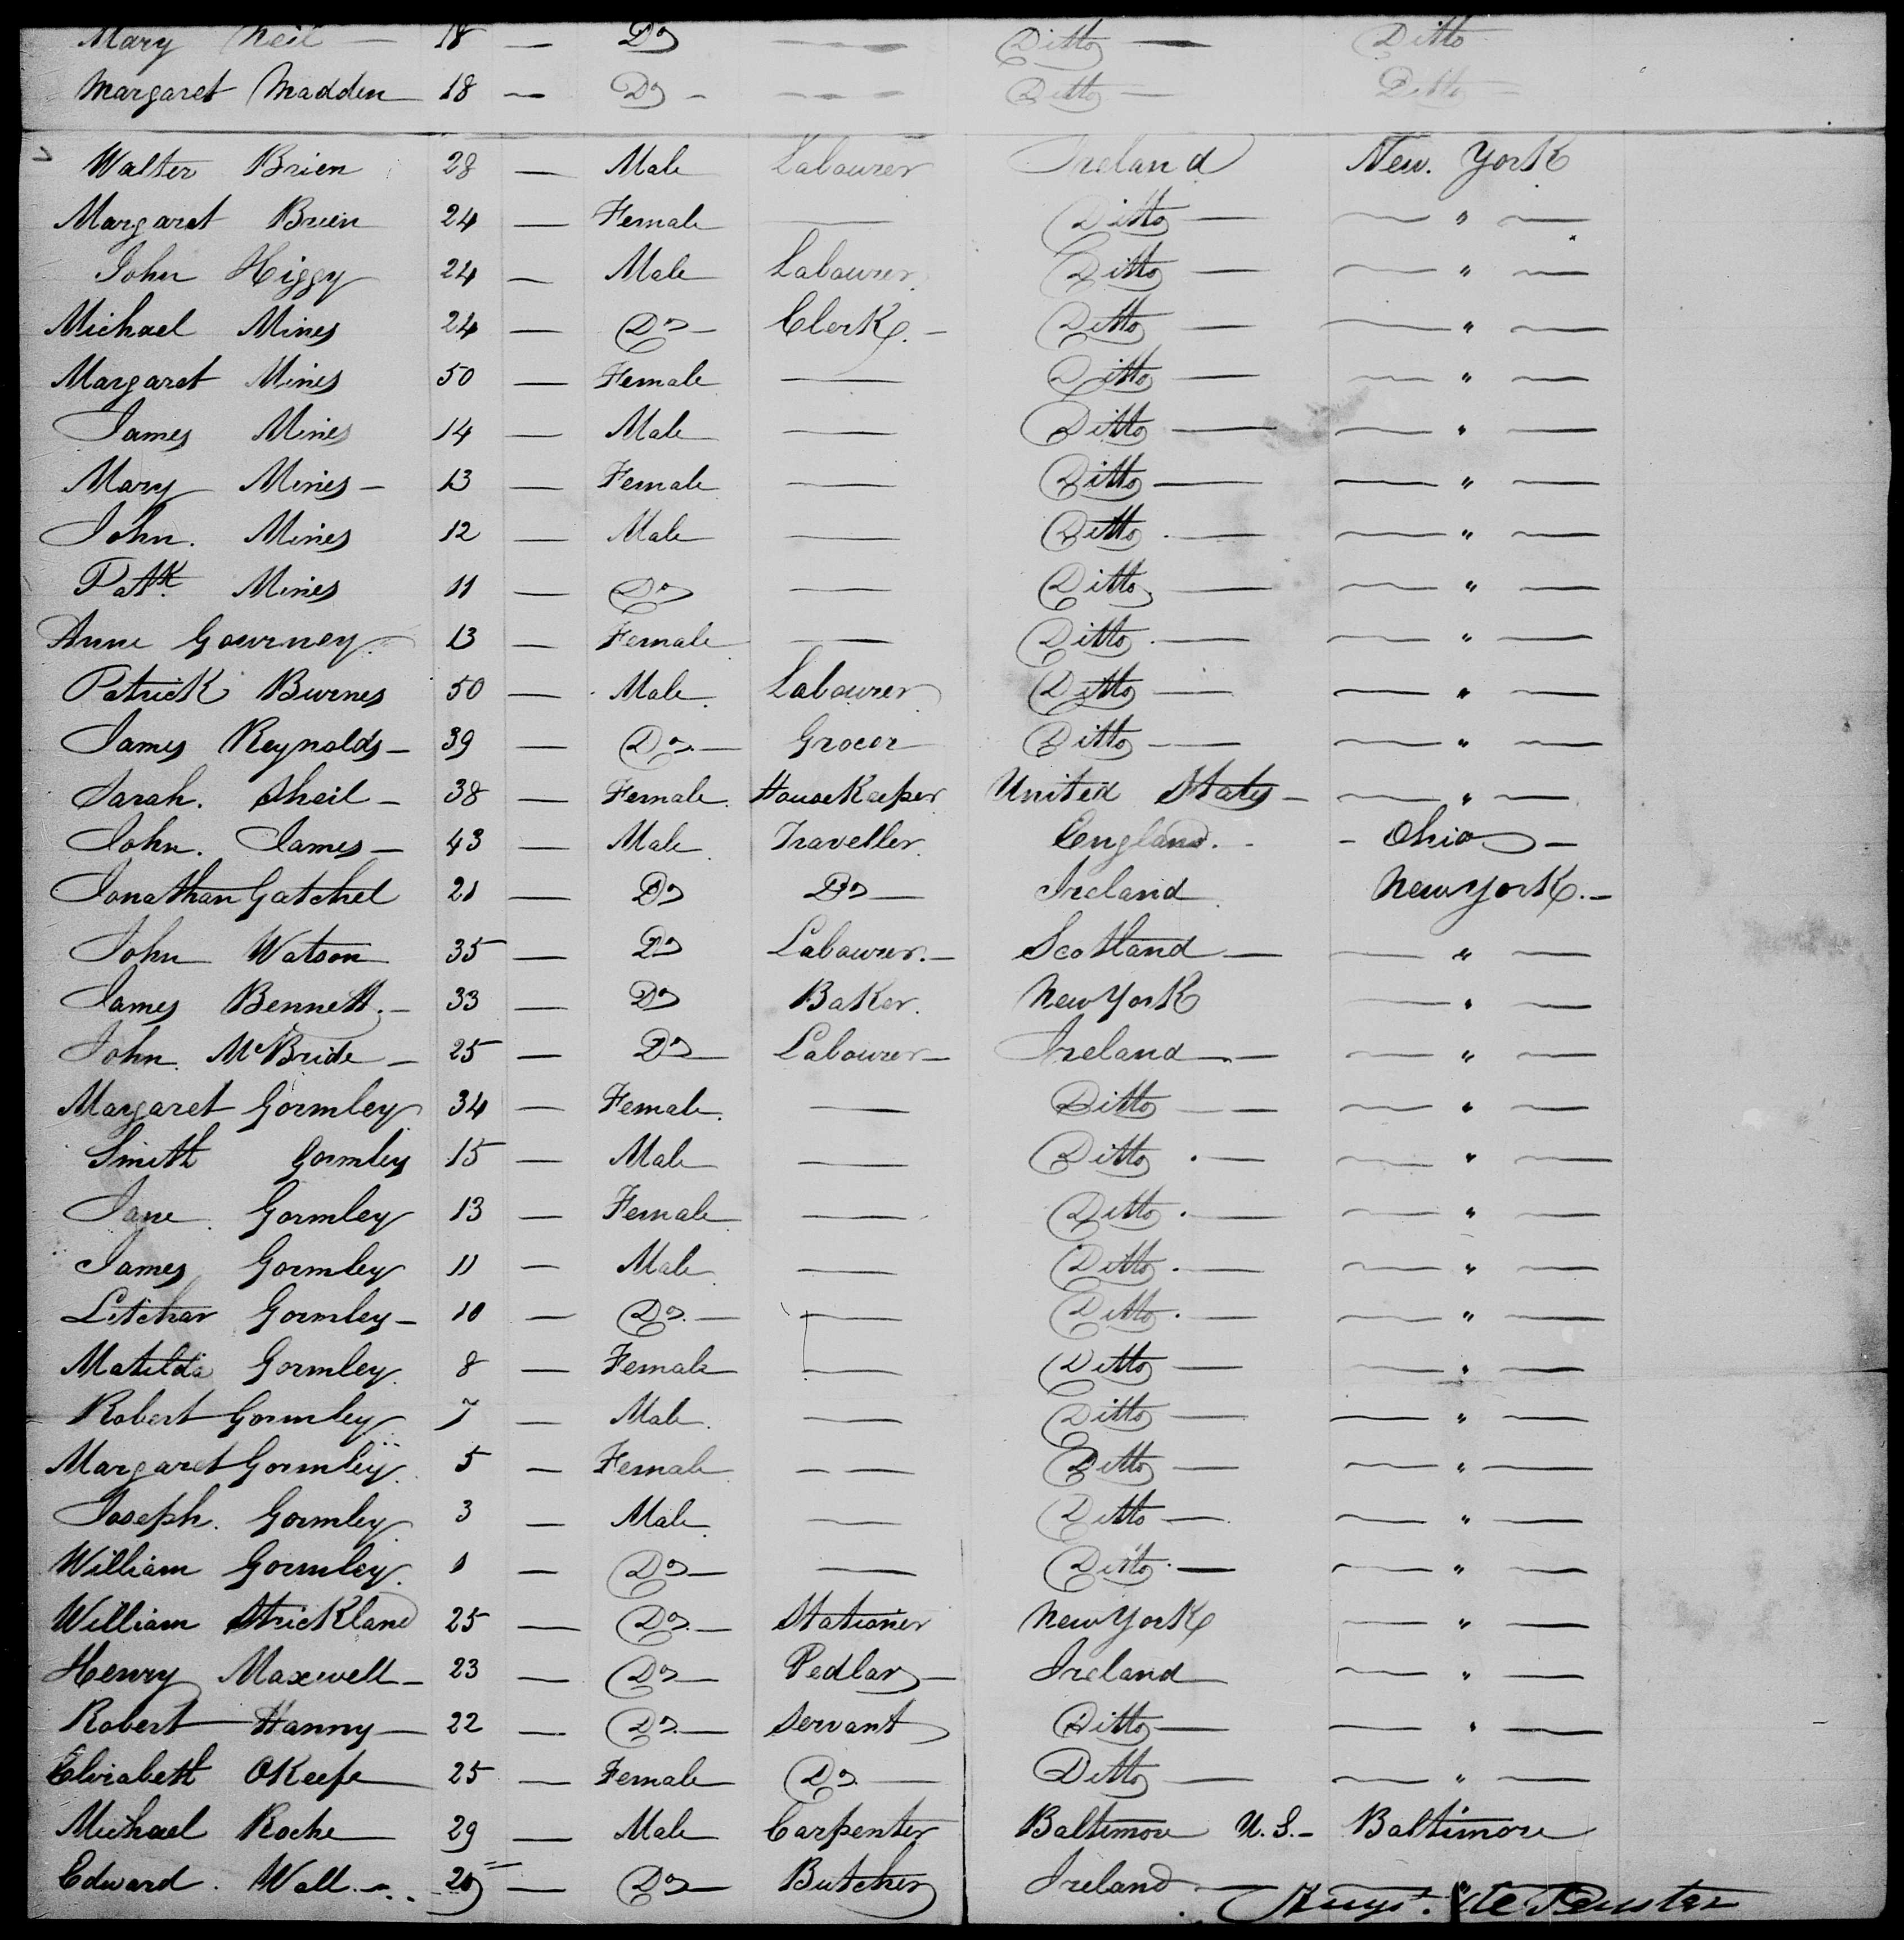 Mary Neil — 18 — Do Ditto — Ditto
Margaret Madden 18 — Do — Ditto — Ditto
Walter Brien 28 — Male Labourer Ireland New. York
Margaret Brien 24 — Female — Ditto — — " —
John Higgy 24 — Male Labourer Ditto — — " —
Michael Mines 24 — Do — Clerk. — Ditto — — " —
Margaret Mines 50 — Female — Ditto — — " —
James Mines 14 — Male — Ditto — — " —
Mary Mines — 13 — Female — Ditto — — " —
John. Mines 12 — Male — Ditto — — " —
Patk. Mines 11 — Do — Ditto — — " —
Anne Gourney 13 — Female — Ditto — — " —
Patrick Burnes 50 — Male Labourer Ditto — — " —
James Reynolds — 39 — Do — Grocer Ditto — — " —
Sarah. Sheil — 38 — Female HouseKeeper United States — — " —
John. James — 43 — Male Traveller England. — Ohio —
Jonathan Gatchel 21 — Do Do — Ireland New York. —
John Watson 35 — Do Labourer. — Scotland — — " —
James Bennett. — 33 — Do Baker. New York — " —
John McBride — 25 — Do Labourer — Ireland — — " —
Margaret Gormley 34 — Female — Ditto — — " —
Smith Gormley 15 — Male — Ditto — — " —
Jane Gormley 13 — Female — Ditto — — " —
James Gormley 11 — Male — Ditto — — " —
Letchar Gormley — 10 — Do — — Ditto — — " —
Matilda Gormley 8 — Female — Ditto — — " —
Robert Gormley 7 — Male — Ditto — — " —
Margaret Gormley 5 — Female — — Ditto — — " —
Joseph. Gormley 3 — Male — Ditto — — " —
William Gormley 1 — Do — — Ditto — — " —
William Strickland 25 — Do — Stationer New York — " —
Henry Maxwell — 23 — Do — Pedlar — Ireland — " —
Robert Hanny — 22 — Do — Servant Ditto — — " —
Elizabeth OKeefe 25 — Female Do — Ditto — — " —
Michael Roche 29 — Male Carpenter Baltimore U.S. — Baltimore
Edward. Wall — Do — Butcher Ireland — "
Augs. De Peyster